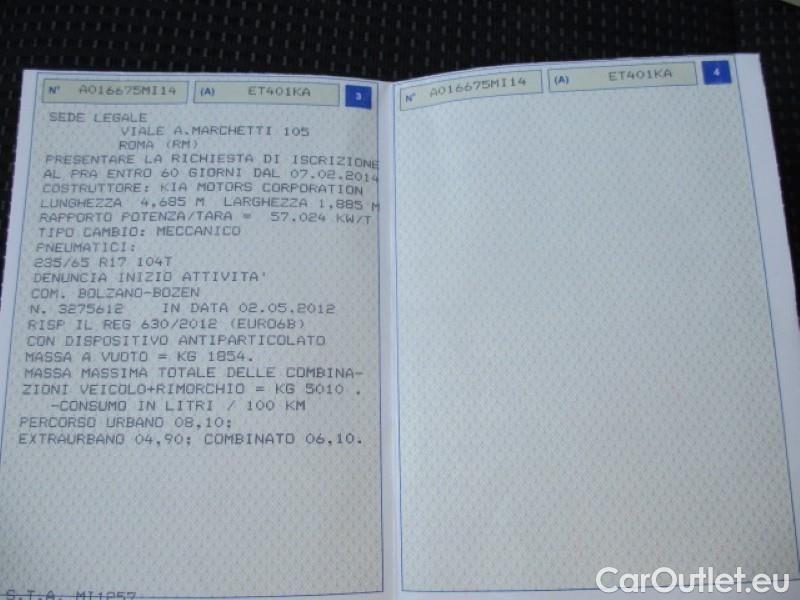 N° A016675MI14 (A) ET401KA 3
SEDE LEGALE
VIALE A.MARCHETTI 105
ROMA (RM)
PRESENTARE LA RICHIESTA DI ISCRIZIONE
AL PRA ENTRO 60 GIORNI DAL 07.02.2014
COSTRUTTORE: KIA MOTORS CORPORATION
LUNGHEZZA 4,685 M LARGHEZZA 1,885 M
RAPPORTO POTENZA/TARA = 57.024 KW/T
TIPO CAMBIO: MECCANICO
PNEUMATICI:
235/65 R17 104T
DENUNCIA INIZIO ATTIVITA'
COM. BOLZANO-BOZEN
N. 3275612 IN DATA 02.05.2012
RISP IL REG 630/2012 (EURO6B)
CON DISPOSITIVO ANTIPARTICOLATO
MASSA A VUOTO = KG 1854.
MASSA MASSIMA TOTALE DELLE COMBINA-
ZIONI VEICOLO+RIMORCHIO = KG 5010 .
-CONSUMO IN LITRI / 100 KM
PERCORSO URBANO 08,10;
EXTRAURBANO 04,90; COMBINATO 06,10.
S.T.A. MI1257
N° A016675MI14 (A) ET401KA 4
CarOutlet.eu